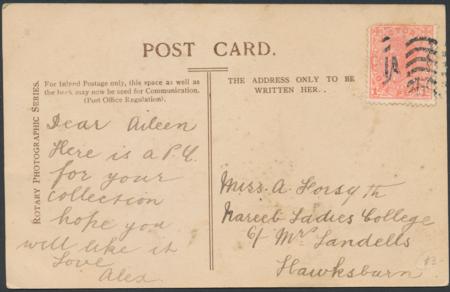 POST CARD.
ROTARY PHOTOGRAPHIC SERIES.
For Inland Postage only, this space as well as
the back may now be used for Communication.
(Post Office Regulation).
Dear Aileen
Here is a P.C.
for your
collection
hope you
will like it
Love
Alex.
THE ADDRESS ONLY TO BE
WRITTEN HERE.
Miss. A. Forsyth
Nareeb Ladies College
c/ Mrs Landells
Hawksburn